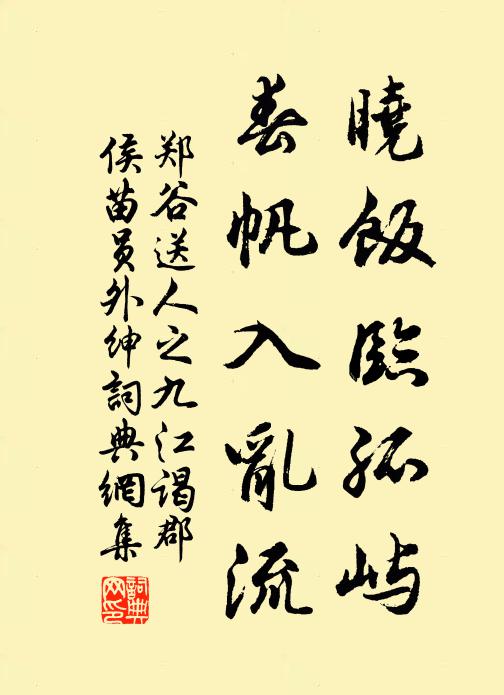 曉飯臨孤嶼
春帆入亂流
郑谷送人之九江谒郡
侯苗员外绅詞典網集
詞典网印